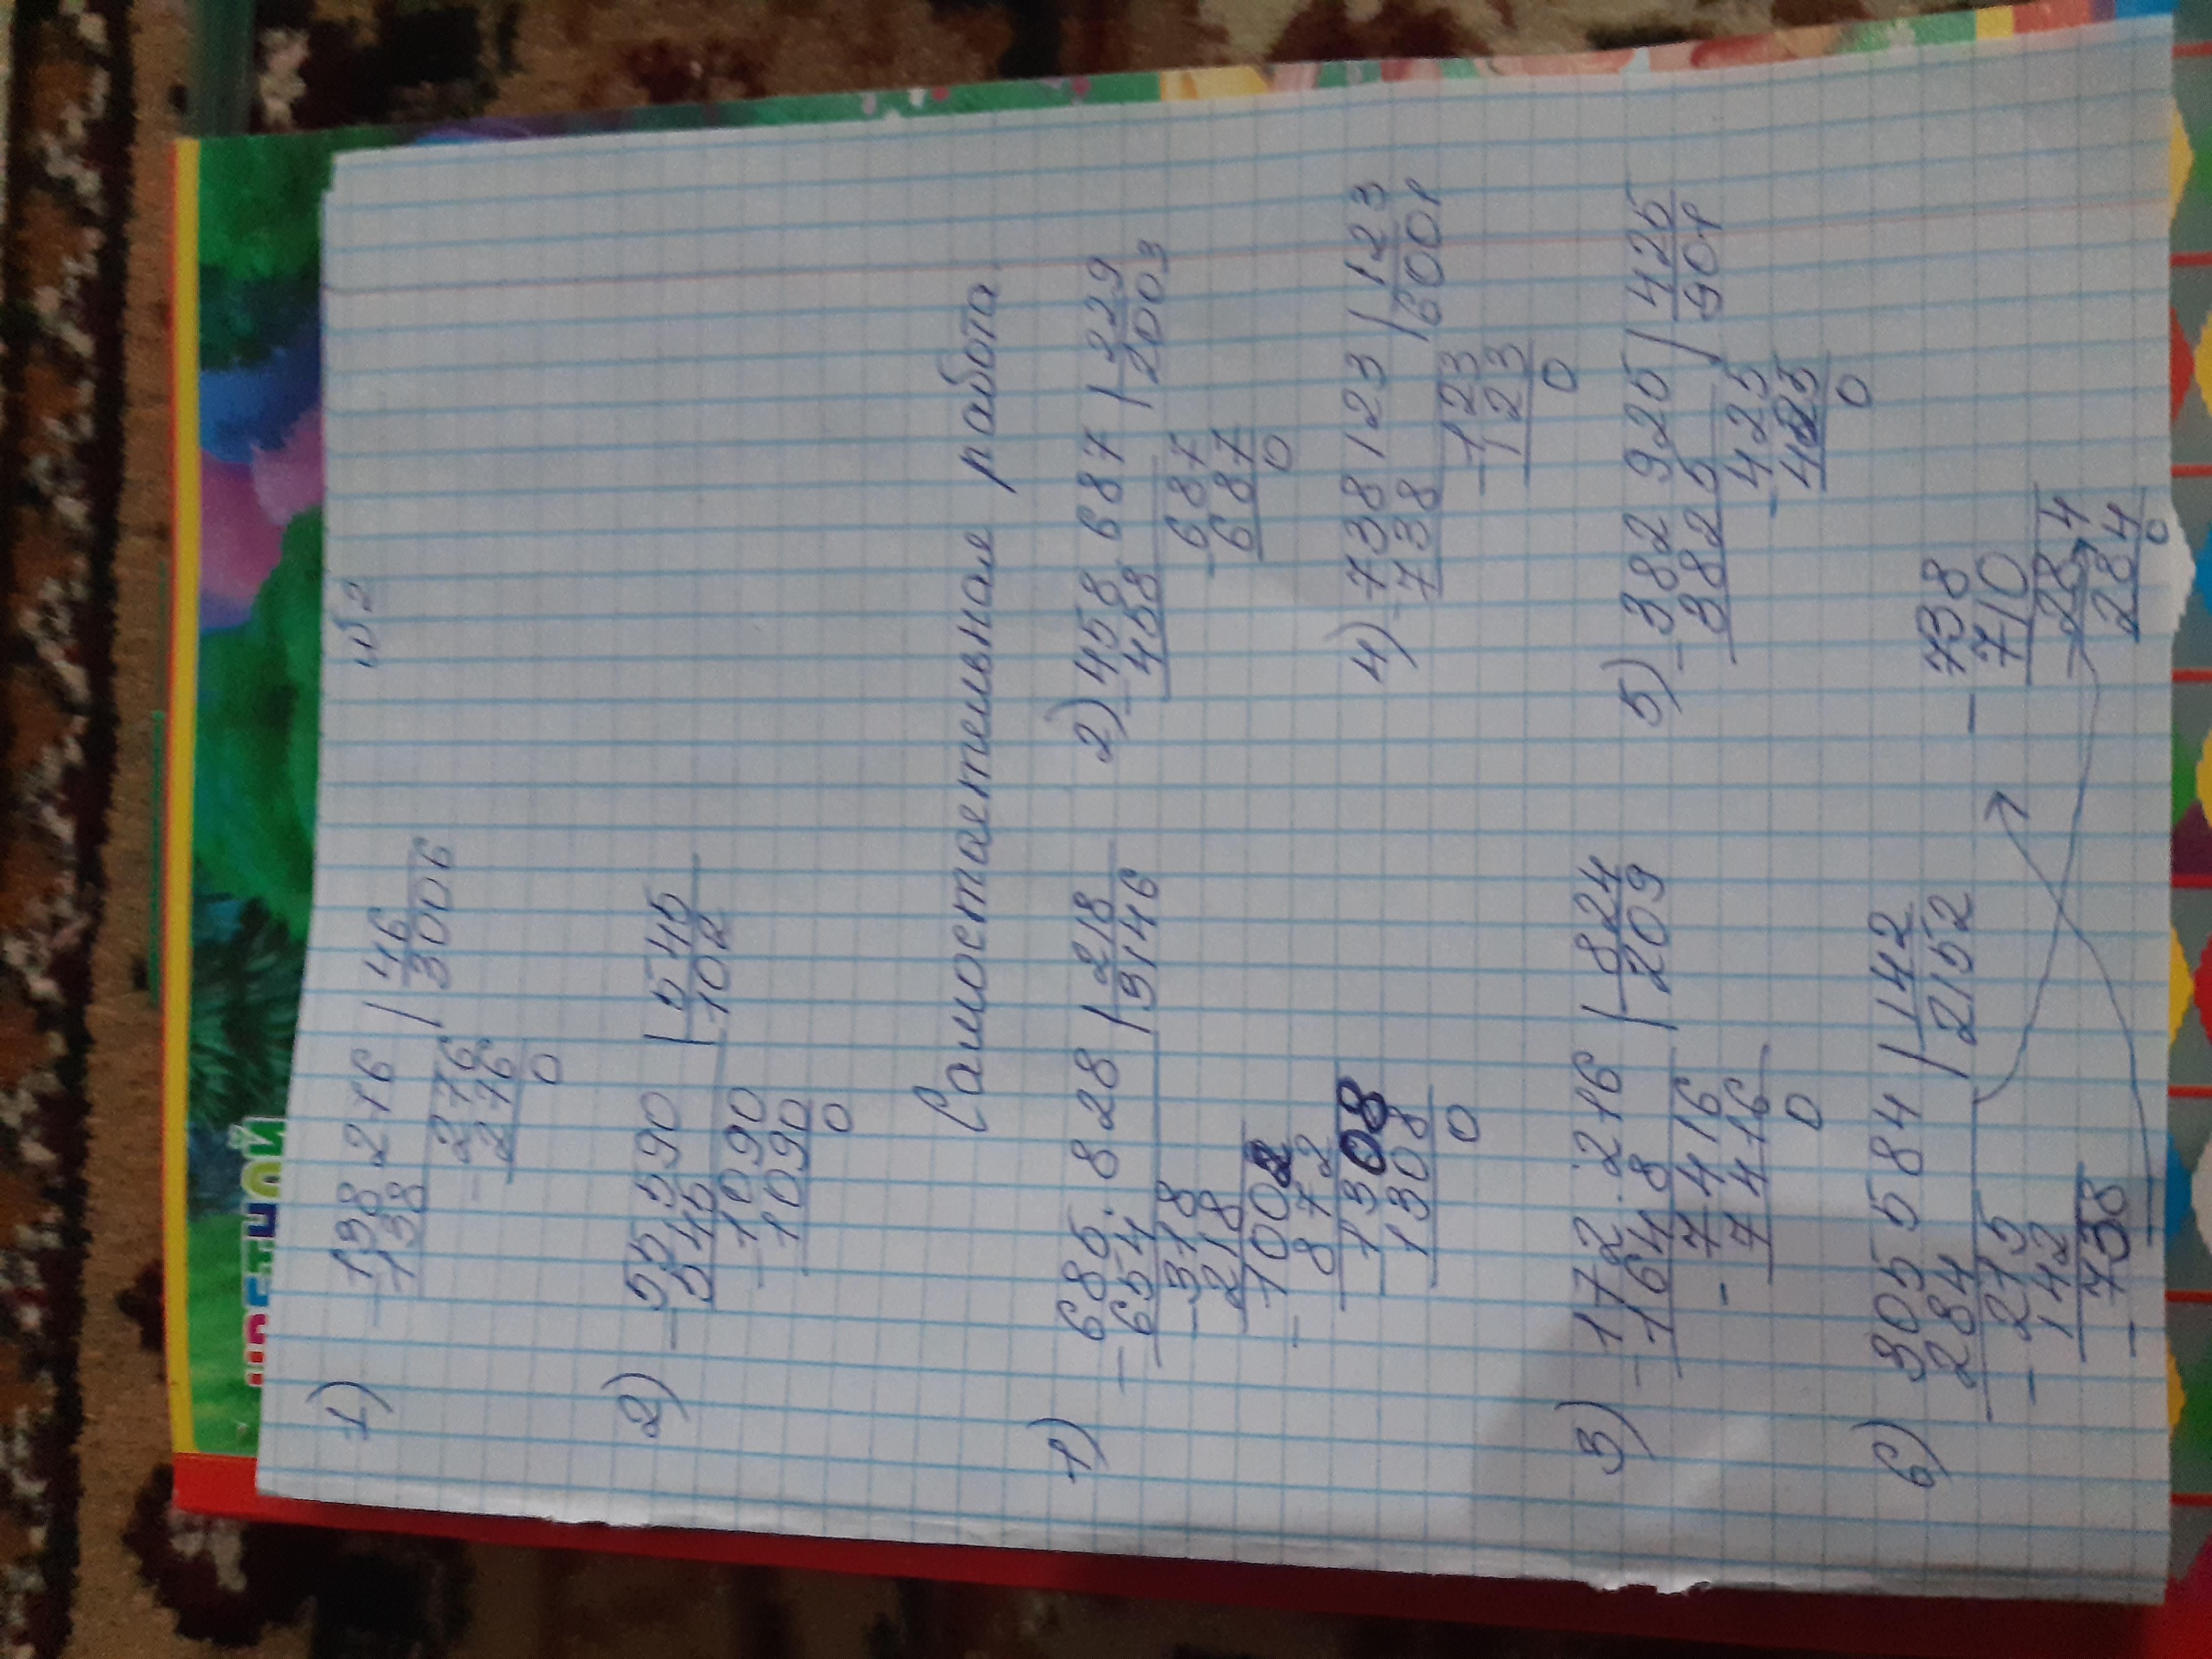 ЦВЕТНОЙ
1) 138276 | 46
138 3006
276
276
0
2) 55590 | 545
545 102
1090
1090
0
Самостоятельная работа
1) 685.828 | 218
654 3146
318
218
1002
872
1308
1308
0
2) 458.687 | 229
458 2003
687
687
0
3) 172.216 | 824
1648 209
7416
7416
0
4) 738123 | 123
738 6001
123
123
0
5) 382925 | 425
3825 901
425
425
0
6) 305584 | 142
284 2152
215
142
738
738
710
284
284
0